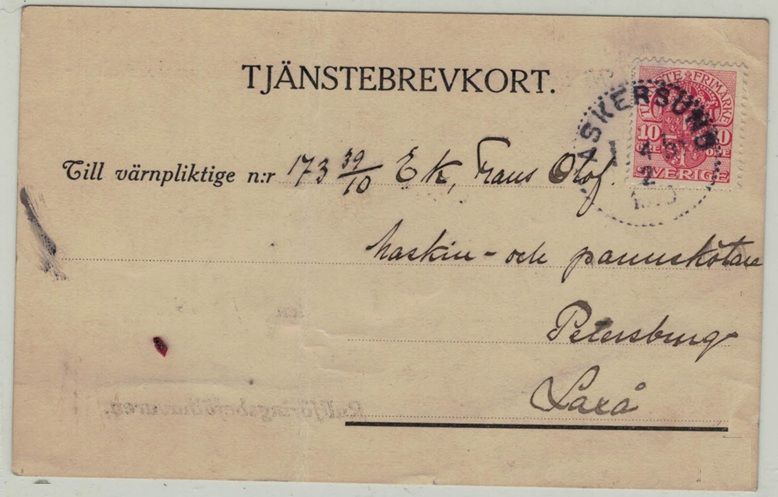 TJÄNSTEBREVKORT.
TJÄNSTE FRIMÄRKE
10 10
ÖRE
SVERIGE
ASKERSUND
Till värnpliktige n:r 173 39/10 Ek, Frans Olof.
maskin- och pannskötare
Petersburg
Laxå
Rullföringsbefälhavaren.